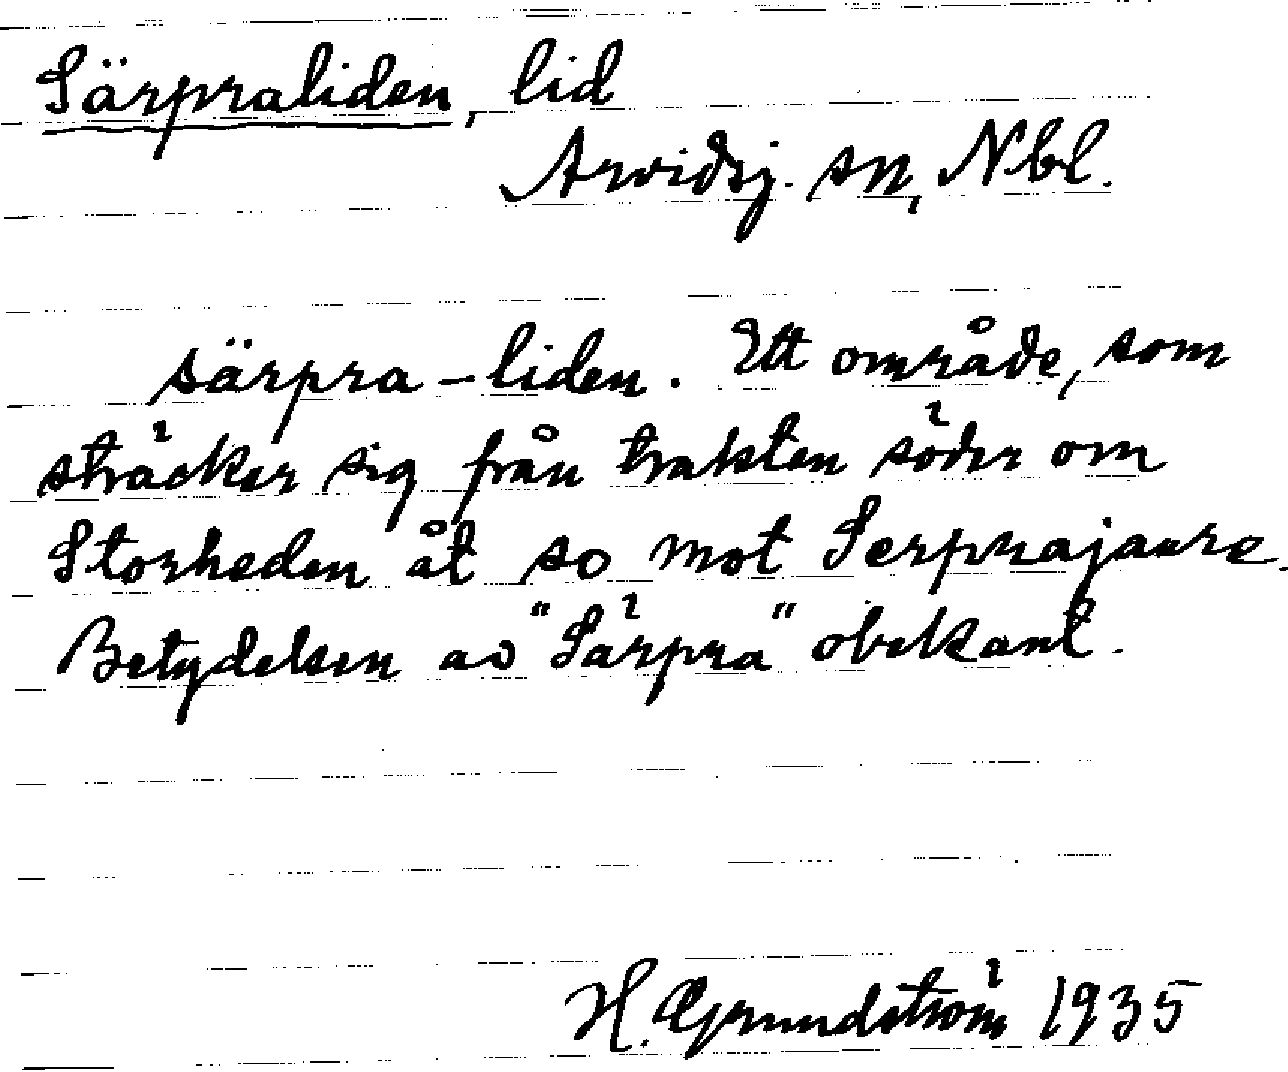 Särpraliden, lid
Arvidsj. sn, Nbl.
särpra-liden. Ett område, som
sträcker sig från trakten söder om
Storheden åt so mot Serprajaure.
Betydelsen av "Särpra" obekant.
H. Grundström 1935